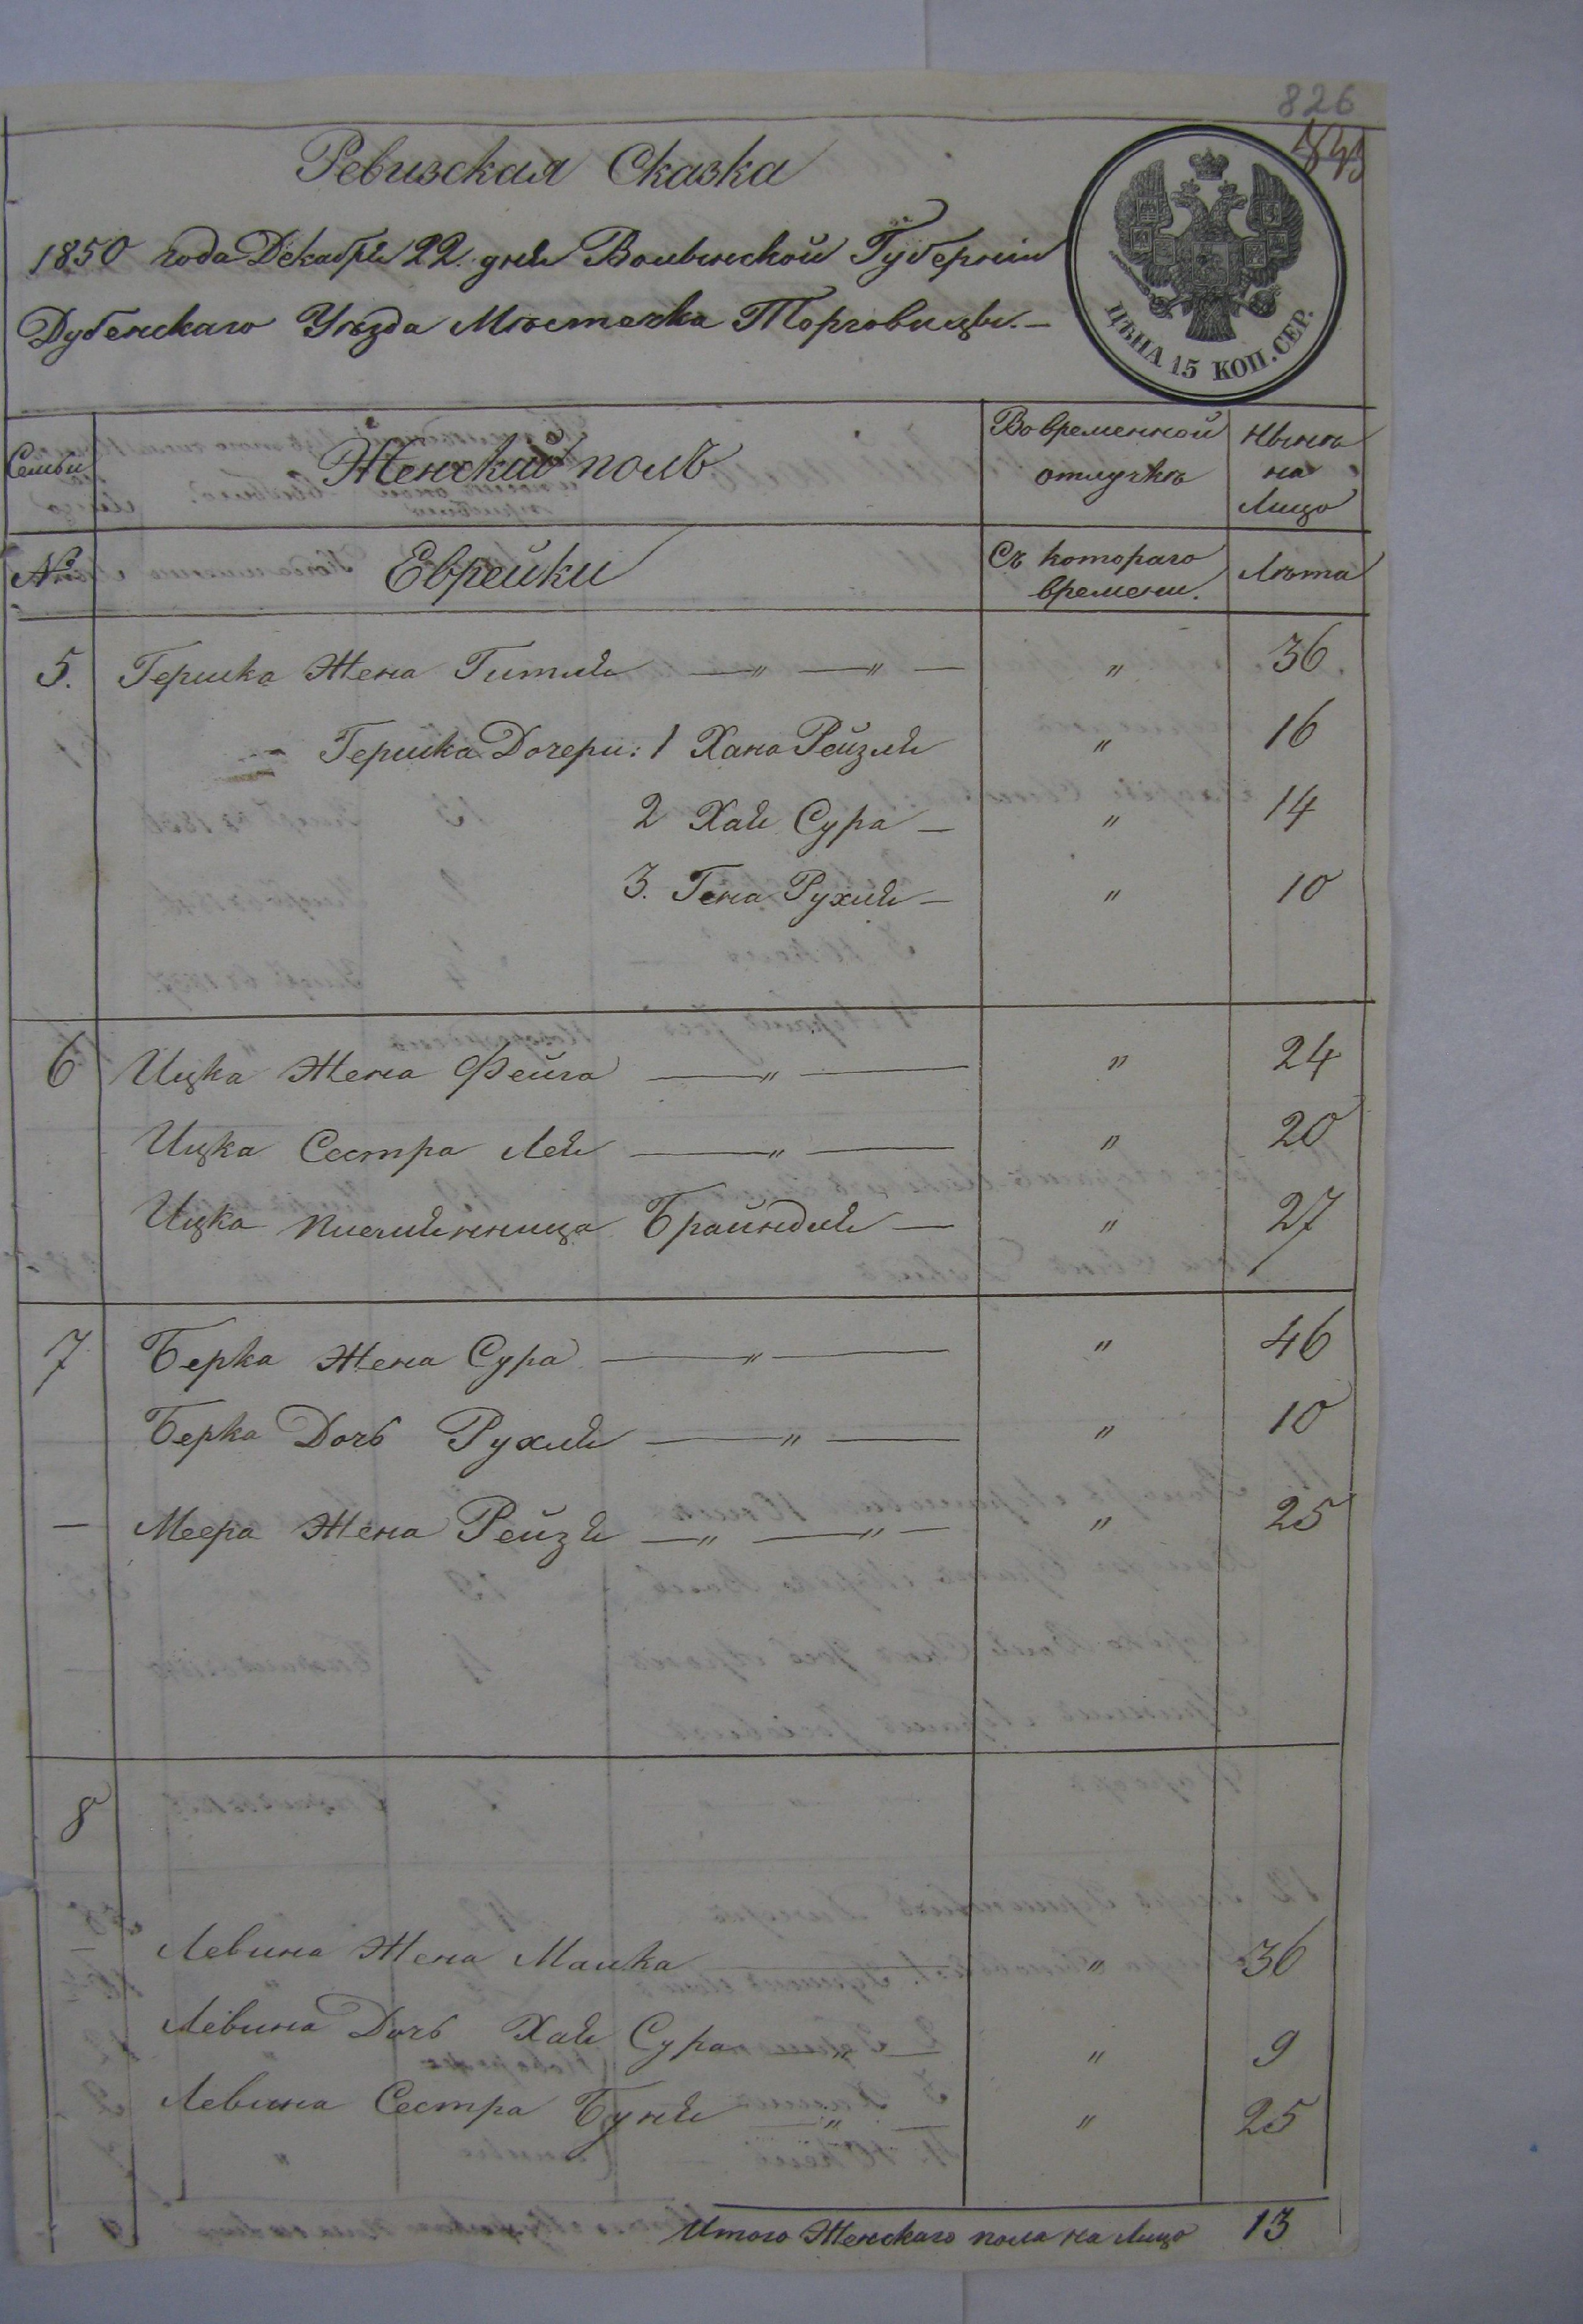 826
Ревизская Сказка
1850 года Декабря 22. дня Волынской Губерніи
Дубенскаго Уѣзда Мѣстечка Торговицы.—
ЦѢНА 15 КОП. СЕР.
Семьи
Женскій полъ
Во временной отлучкѣ
Нынѣ на Лицо
№
Еврейки
Съ котораго времени.
Лѣта
5. Гершка Жена Гитля — " — " — " 36
Гершка Дочери: 1 Хана Рейзля " 16
2 Хая Сура — " 14
3. Гена Рухля — " 10
6 Ицка Жена Фейга — " — " 24
Ицка Сестра Лея — " — " 20
Ицка племянница Брайндля — " 27
7 Берка Жена Сура — " — " 46
Берка Дочь Рухля — " — " 10
— Меера Жена Рейзя — " — " — " 25
8
Левина Жена Малка — " 36
Левина Дочь Хая Сура — " — " 9
Левина Сестра Буня — " — " 25
Итого Женскаго пола на Лицо 13